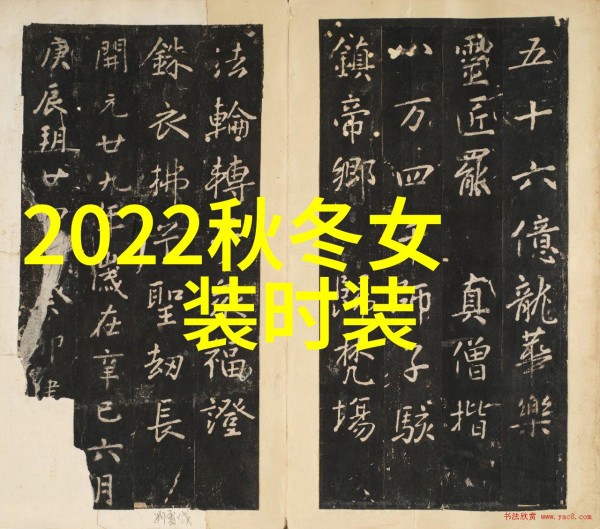 2022秋冬女
装时装
五十六億龍華樂
靈匠罷 真僧揩
八万四 師子駭
鎮帝鄉 梵場
法輪轉 福證
銖衣拂 聖劫長
開元廿九年歲在辛巳六月
庚辰朔廿
书法欣赏 www.yac8.com